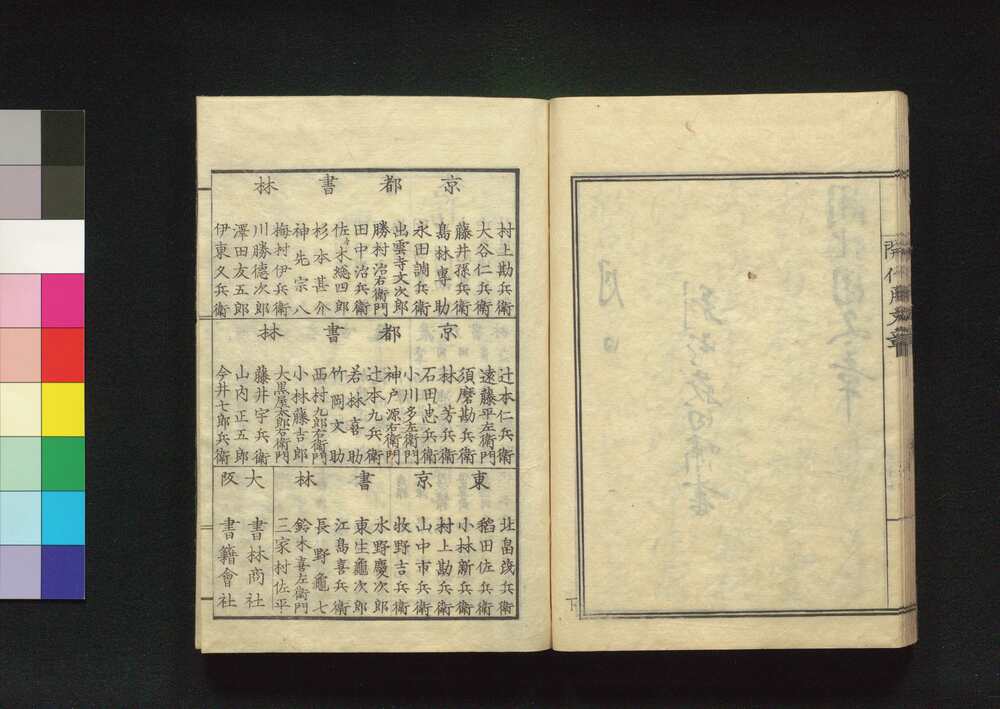 京都書林
村上勘兵衛
大谷仁兵衛
藤井孫兵衛
島林專助
永田調兵衛
出雲寺文次郎
勝村治右衛門
田中治兵衛
佐々木総四郎
杉本甚介
神先宗八
梅村伊兵衛
川勝德次郎
澤田友五郎
伊東久兵衛
京都書林
辻本仁兵衛
遠藤平左衛門
須磨勘兵衛
林芳兵衛
石田忠兵衛
小川多左衛門
神戸源右衛門
辻本九兵衛
若林喜助
竹岡文助
西村九郎右衛門
小林藤吉郎
大黒屋太郎右衛門
藤井宇兵衛
山内正五郎
今井七郎兵衛
東京書林
北畠茂兵衛
稲田佐兵衛
小林新兵衛
村上勘兵衛
山中市兵衛
牧野吉兵衛
水野慶次郎
東生龜次郎
江島喜兵衛
長野龜七
鈴木喜左衛門
三家村佐平
大阪
書林商社
書籍會社
下